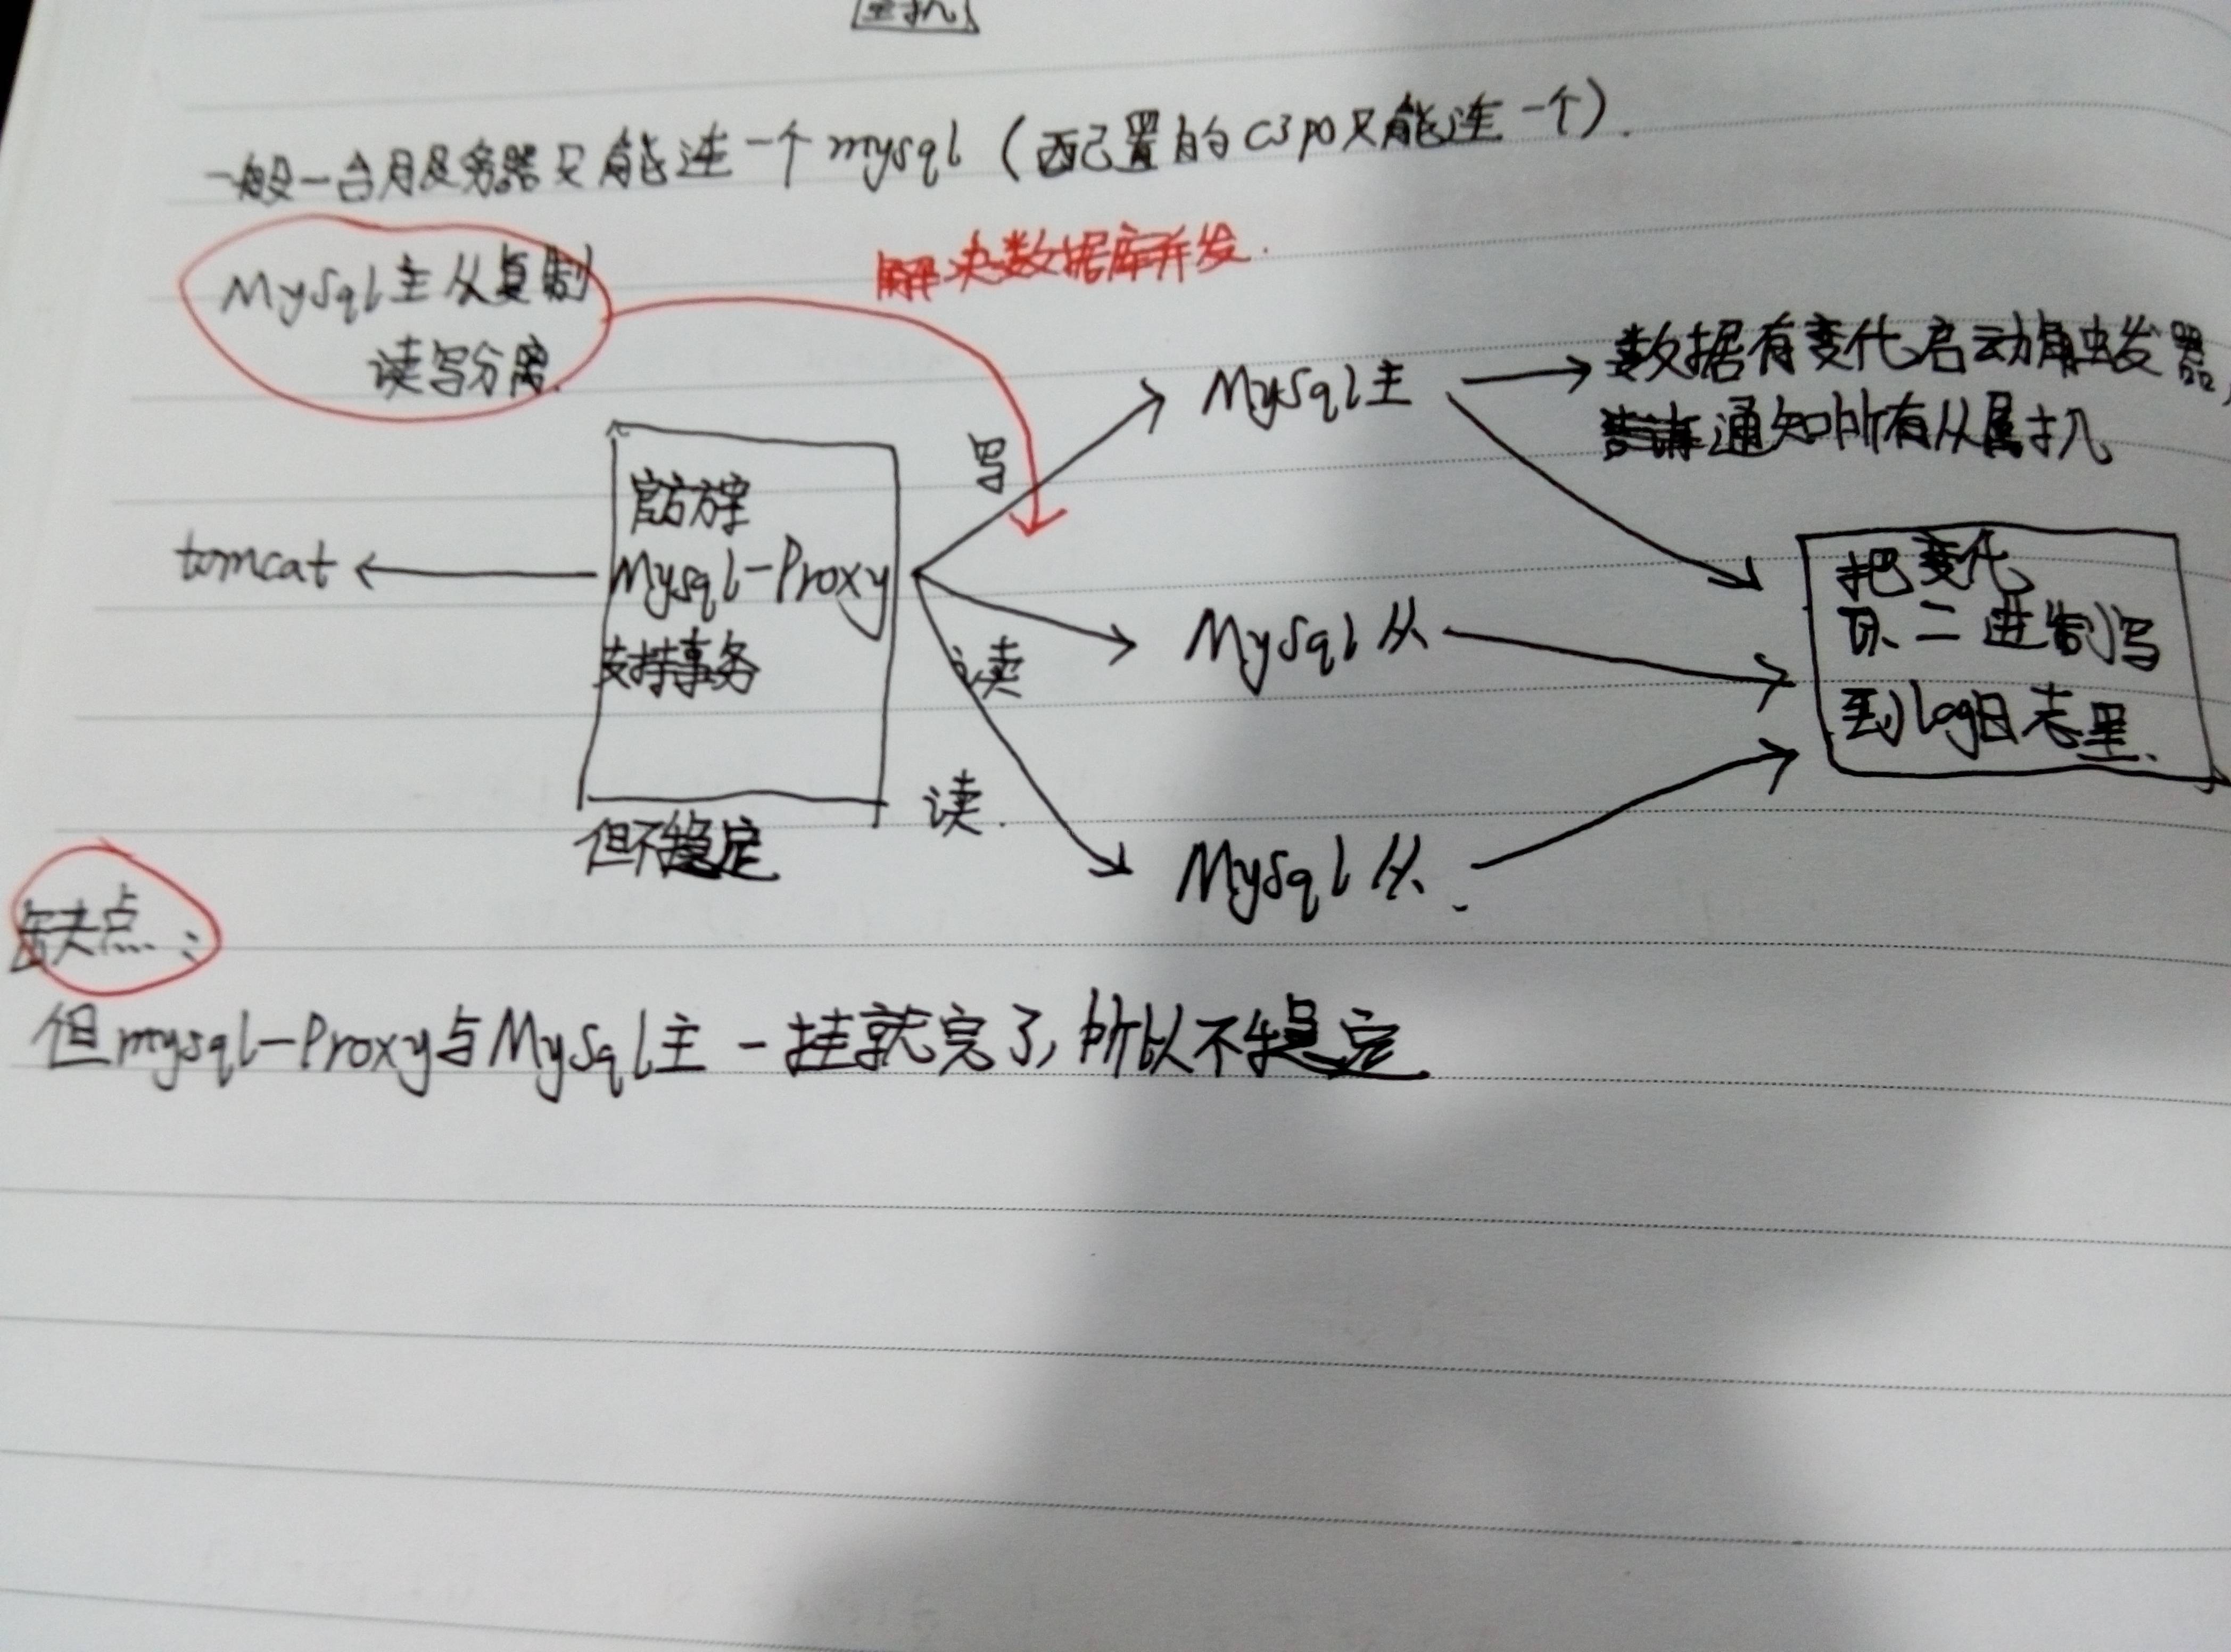 一般一台服务器只能连一个mysql（配置的C3P0只能连一个）.
解决数据库并发.
MySql主从复制
读写分离.
MySql主
数据有变化启动触发器,
通知所有从属机
写
官方
Mysql-Proxy
支持事务
tomcat
MySql从
读
把变化
以二进制写
到log日志里.
读.
但不稳定
MySql从.
缺点:
但mysql-Proxy与MySql主一挂就完了,所以不稳定